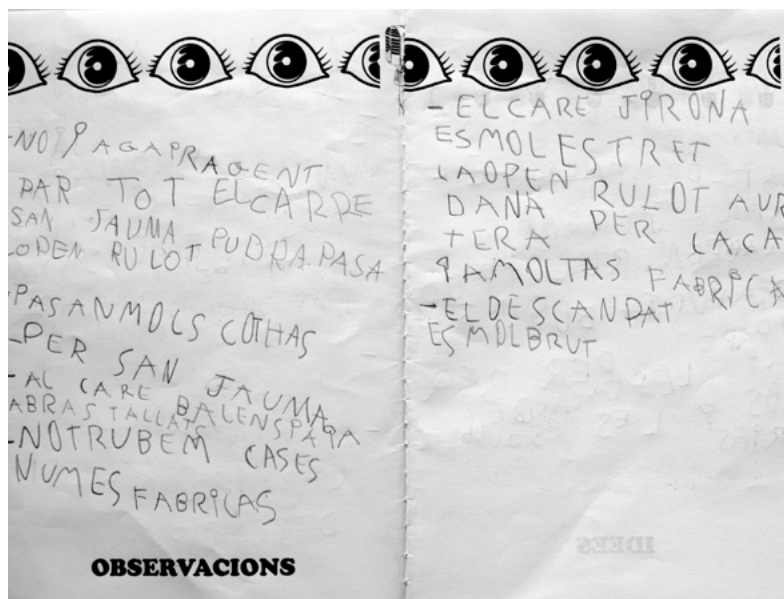 -NO I AGAPRAGENT
PAR TOT ELCARRE
SAN JAUMA PUDRA PASA
LOPEN RULOT
-PASANMOLS COTHAS
-PER SAN JAUMA
-AL CARE BALENSPAIA
ABRAS TALLATS
-NOTRUBEM CASES
NUMES FABRICAS
OBSERVACIONS
-ELCARE JIRONA
ESMOL ESTRET
LAOPEN RULOT AUR
DANA PER LACA
TERA
I AMOLTAS FABRICA
-ELDESCANPAT
ESMOLBRUT
IDEES